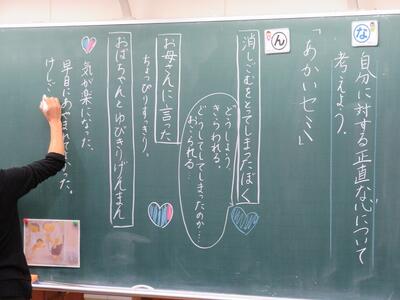 な
自分に対する正直な心について
考えよう。
「あかいセミ」
ん
消しごむをとってしまったぼく
どうしよう
きらわれる。
どうしてしてしまったのか…
おこられる…
お母さんに言った
ちょっぴりすっきり。
おばちゃんとゆびきりげんまん
気が楽になった。
早目にあやまれてよかった。
けしご